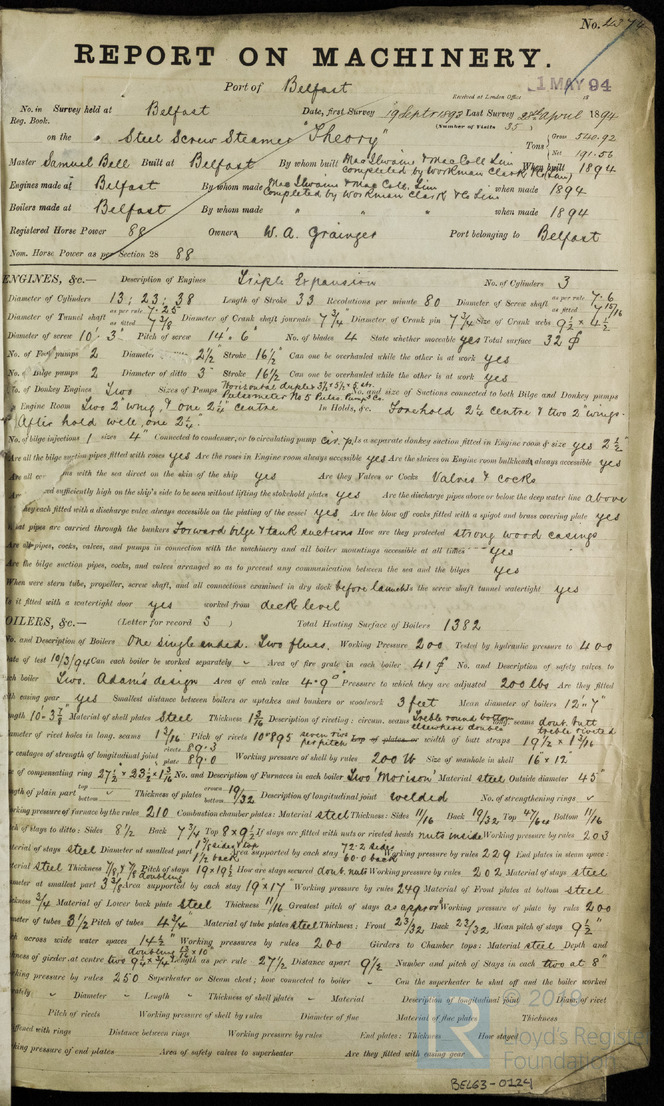 No. 4374
REPORT ON MACHINERY.
Port of Belfast
Received at London Office 1 MAY 94 18
No. in Survey held at Belfast Date, first Survey 19 Septr 1892 Last Survey 23rd April 1894
Reg. Book. (Number of Visits 35)
on the Steel Screw Steamer "Theory" Tons Gross 540.92 Net 191.56
Master Samuel Bell Built at Belfast By whom built MacIlwaine & MacColl Lim completed by Workman Clark & Co Lim When built 1894
Engines made at Belfast By whom made MacIlwaine & MacColl, Lim completed by Workman Clark & Co Lim when made 1894
Boilers made at Belfast By whom made " " " when made 1894
Registered Horse Power 88 Owners W. A. Grainger Port belonging to Belfast
Nom. Horse Power as per Section 28 88
ENGINES, &c.— Description of Engines Triple Expansion No. of Cylinders 3
Diameter of Cylinders 13; 23; 38 Length of Stroke 33 Revolutions per minute 80 Diameter of Screw shaft as per rule 7.6 as fitted 7 15/16
Diameter of Tunnel shaft as per rule 7.25 as fitted 7 3/8 Diameter of Crank shaft journals 7 3/4" Diameter of Crank pin 7 3/4 Size of Crank webs 9 1/2 x 4 1/2
Diameter of screw 10'. 3" Pitch of screw 14'. 6" No. of blades 4 State whether moveable yes Total surface 32
No. of Feed pumps 2 Diameter 2 1/2" Stroke 16 1/2" Can one be overhauled while the other is at work yes
No. of Bilge pumps 2 Diameter of ditto 3" Stroke 16 1/2 Can one be overhauled while the other is at work yes
No. of Donkey Engines Two Sizes of Pumps Horizontal duplex 3 1/2 x 5 1/2 x 5 Pulsometer No 5 Pulso. Pump Co. No. and size of Suctions connected to both Bilge and Donkey pumps
Engine Room Two 2" wing, & one 2 1/4" centre In Holds, &c. Forehold 2 1/4 centre & two 2" wings.
After hold well, one 2 1/4".
No. of bilge injections 1 sizes 4" Connected to condenser, or to circulating pump cir. p. Is a separate donkey suction fitted in Engine room & size yes 2 1/2"
Are all the bilge suction pipes fitted with roses yes Are the roses in Engine room always accessible yes Are the sluices on Engine room bulkheads always accessible yes
Are all connections with the sea direct on the skin of the ship yes Are they Valves or Cocks Valves & cocks
Are sufficiently high on the ship's side to be seen without lifting the stokehold plates yes Are the discharge pipes above or below the deep water line above
they each fitted with a discharge valve always accessible on the plating of the vessel yes Are the blow off cocks fitted with a spigot and brass covering plate yes
What pipes are carried through the bunkers Forward bilge & tank suctions How are they protected strong wood casings
Are all pipes, cocks, valves, and pumps in connection with the machinery and all boiler mountings accessible at all times yes
Are the bilge suction pipes, cocks, and valves arranged so as to prevent any communication between the sea and the bilges yes
When were stern tube, propeller, screw shaft, and all connections examined in dry dock before launch Is the screw shaft tunnel watertight yes
Is it fitted with a watertight door yes worked from deck level
BOILERS, &c.— (Letter for record S ) Total Heating Surface of Boilers 1382
No. and Description of Boilers One single ended. Two flues. Working Pressure 200 Tested by hydraulic pressure to 400
Date of test 10/3/94 Can each boiler be worked separately " Area of fire grate in each boiler 41 No. and Description of safety valves to
each boiler Two. Adam's design Area of each valve 4.9 Pressure to which they are adjusted 200 lbs Are they fitted
with easing gear yes Smallest distance between boilers or uptakes and bunkers or woodwork 3 feet Mean diameter of boilers 12'. 7"
Length 10'. 3 7/8" Material of shell plates Steel Thickness 1 3/16 Description of riveting: circum. seams treble round bottom elsewhere double long. seams doub. butt treble riveted
Diameter of rivet holes in long. seams 1 3/16" Pitch of rivets 10.895 seven rivs per pitch lap of plates or width of butt straps 19 1/2 x 1 3/16
Per centages of strength of longitudinal joint rivets 89.3 plate 89.0 Working pressure of shell by rules 200 lb Size of manhole in shell 16" x 12"
Size of compensating ring 27 1/2 x 23 1/2 x 1 No. and Description of Furnaces in each boiler Two Morison Material steel Outside diameter 45"
Length of plain part top bottom Thickness of plates crown bottom 19/32 Description of longitudinal joint welded No. of strengthening rings
Working pressure of furnace by the rules 210 Combustion chamber plates: Material steel Thickness: Sides 11/16 Back 19/32 Top 47/64 Bottom 11/16
Pitch of stays to ditto: Sides 8 1/2 Back 7 3/4 Top 8 x 9 1/2 If stays are fitted with nuts or riveted heads nuts inside Working pressure by rules 203
Material of stays steel Diameter at smallest part 1 5/8 sides & top 1 1/2 back Area supported by each stay 72.2 sides 60.0 back Working pressure by rules 229 End plates in steam space:
Material steel Thickness 7/8 & 7/8 doubling Pitch of stays 19 x 19 1/2 How are stays secured doub. nuts Working pressure by rules 202 Material of stays steel
Diameter at smallest part 3 3/8 Area supported by each stay 19 x 17" Working pressure by rules 249 Material of Front plates at bottom steel
Thickness 3/4 Material of Lower back plate steel Thickness 11/16 Greatest pitch of stays as approv'd Working pressure of plate by rules 200
Diameter of tubes 3 1/2 Pitch of tubes 4 3/4" Material of tube plates steel Thickness: Front 23/32 Back 23/32 Mean pitch of stays 9 1/2"
Pitch across wide water spaces 14 1/2" Working pressures by rules 200 Girders to Chamber tops: Material steel Depth and
thickness of girder at centre two 9 1/2 x 3/4 Length as per rule 27 1/2 Distance apart 9 1/2 Number and pitch of Stays in each two at 8"
Working pressure by rules 250 Superheater or Steam chest; how connected to boiler " Can the superheater be shut off and the boiler worked
separately " Diameter " Length " Thickness of shell plates " Material Description of longitudinal joint Diam. of rivet
Pitch of rivets Working pressure of shell by rules Diameter of flue Material of flue plates Thickness
stiffened with rings Distance between rings Working pressure by rules End plates: Thickness How stayed
Working pressure of end plates Area of safety valves to superheater Are they fitted with easing gear
© 2019
Lloyd's Register
Foundation
BEL63-0124